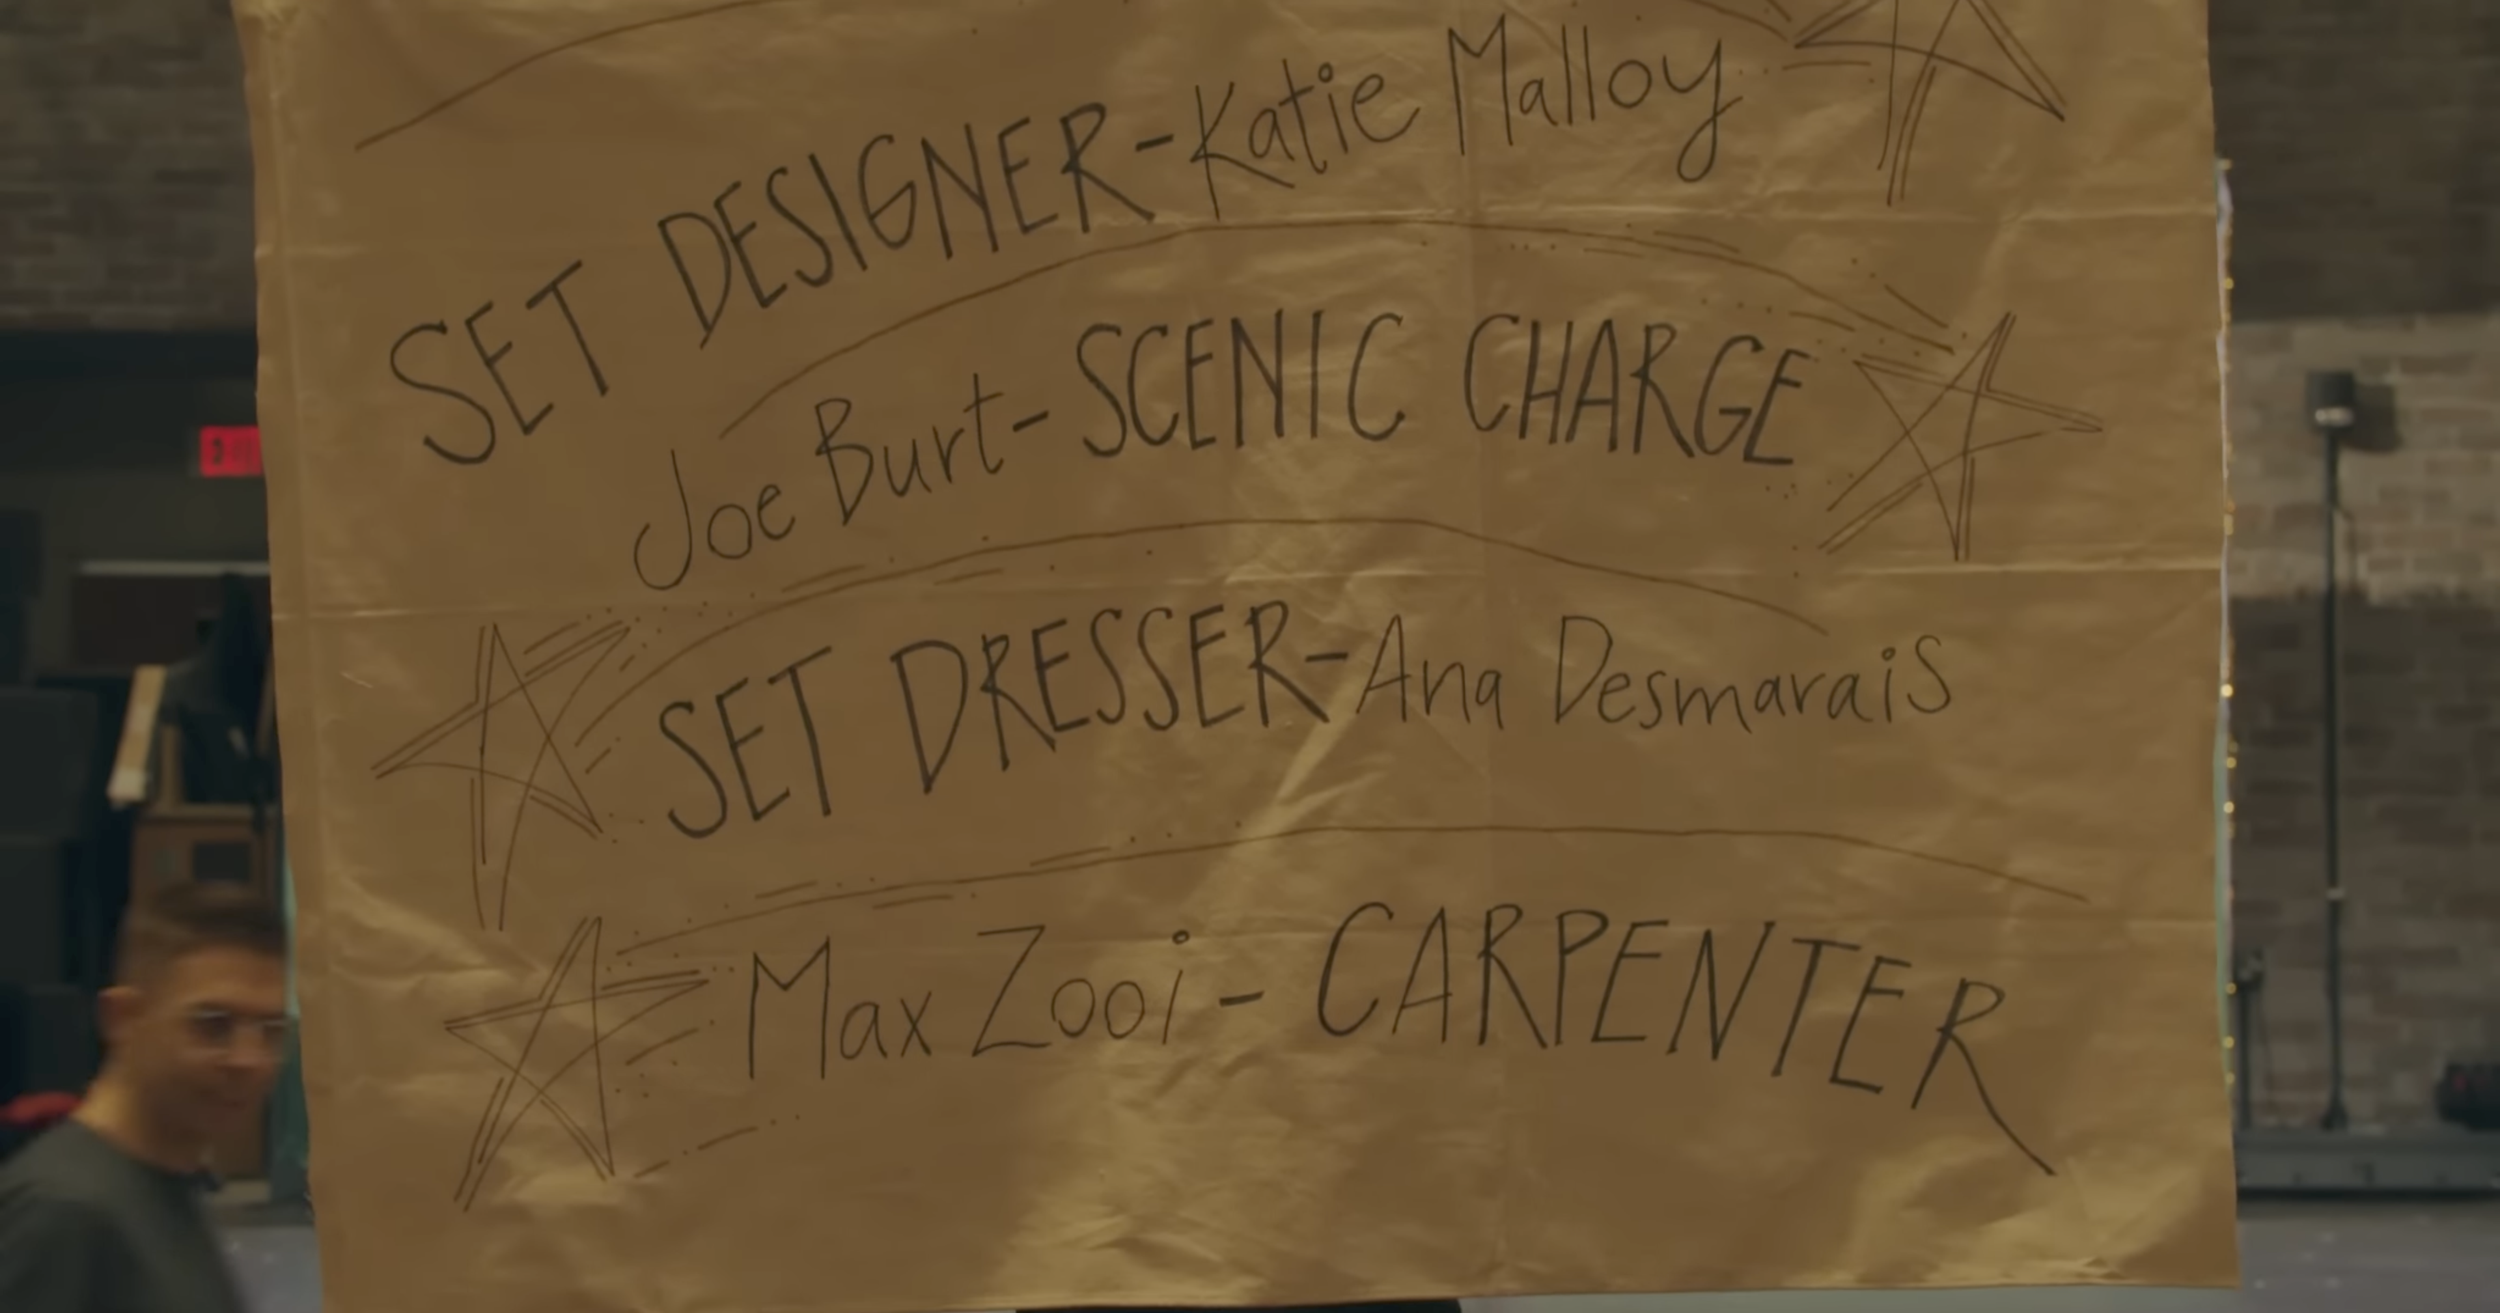 SET DESIGNER-Katie Malloy
Joe Burt-SCENIC CHARGE
SET DRESSER-Ana Desmarais
Max Zooi- CARPENTER